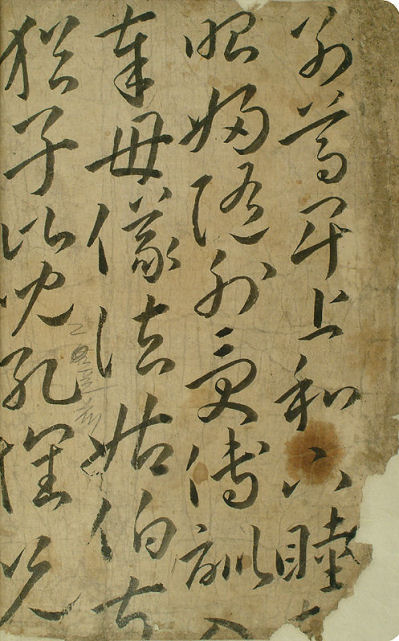 別尊卑上和下睦夫
唱婦隨外受傅訓入
奉母儀諸姑伯叔
猶子比兒孔懷兄